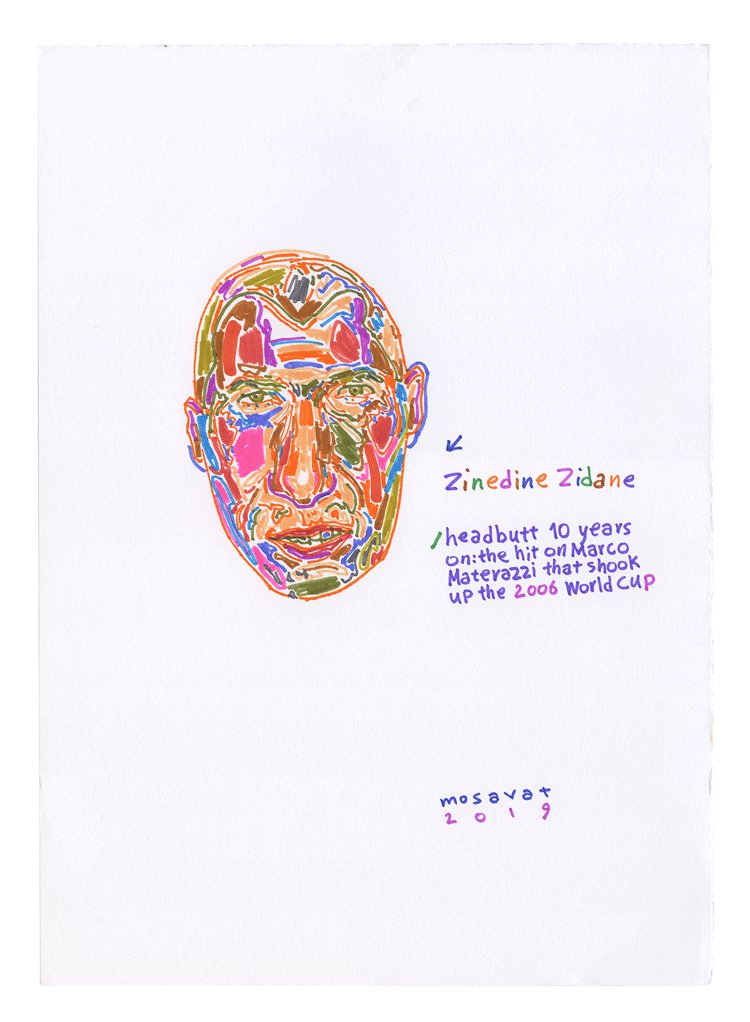 Zinedine Zidane
headbutt 10 years
on: the hit on Marco
Materazzi that shook
up the 2006 World Cup
mosavat
2019